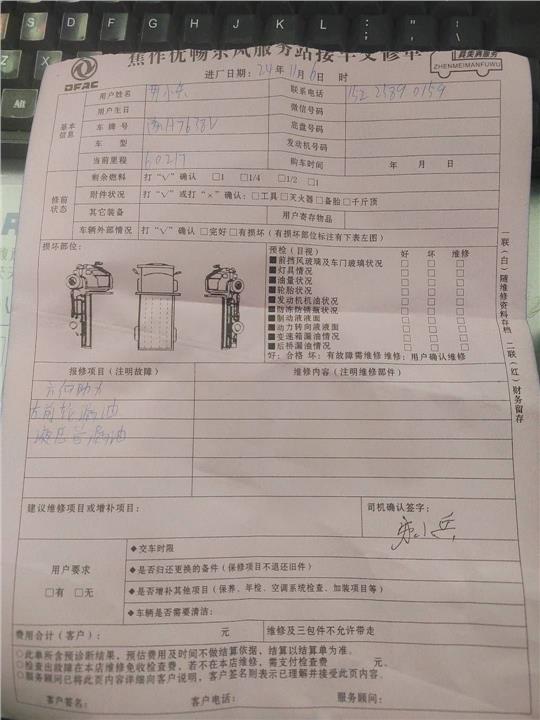 焦作优畅东风服务站接车交修单
DFAC
真美真服务
ZHENMEIMANFUWU
进厂日期：24年11月6日 时
基本信息
用户姓名
联系电话 152 2589 0159
用户生日
微信号码
车牌号
底盘号码
车型
发动机号码
当前里程 60217
购车时间 年 月 日
修前状态
剩余燃料 打“√”确认 □1 □1/4 □1/2 □1
附件状况 打“√”或打“×”确认：□工具□灭火器□备胎□千斤顶
其它装备 用户寄存物品
车辆外部情况 打“√”确认 □完好 □有损坏（有损坏部位标注有下表左图）
损坏部位：
预检（目视） 好 坏 维修
■前挡风玻璃及车门玻璃状况 □ □ □
■灯具情况 □ □ □
■油量状况 □ □ □
■轮胎状况 □ □ □
■发动机机油状况 □ □ □
■防冻防锈瓶状况 □ □ □
■制动液液面 □ □ □
■动力转向液液面 □ □ □
■变速箱漏油情况 □ □ □
■后桥漏油情况 □ □ □
好：合格 坏：有故障需维修 维修：用户确认维修
一联（白）随维修资料存档 二联（红）财务留存
报修项目（注明故障） 维修内容（注明维修部件）
方向助力
左前轮漏油
液压管漏油
建议维修项目或增补项目： 司机确认签字：
小兵
用户要求
□有 □无
◆交车时限
◆是否归还更换的备件（保修项目不退还旧件）
◆是否增补其他项目（保养、年检、空调系统检查、加装项目等）
◆车辆是否需要清洁：
费用合计（客户）： 元 维修及三包件不允许带走
○此单所含预诊断结果，预估费用及时间不做结算依据，结算以结算单为准。
○检查出故障在本店维修免收检查费，若不在本店维修，需支付检查费 元。
○服务顾问已将此页内容详细向客户说明，客户签名则表示已理解并接受此页内容。
客户签名： 客户电话： 服务顾问：